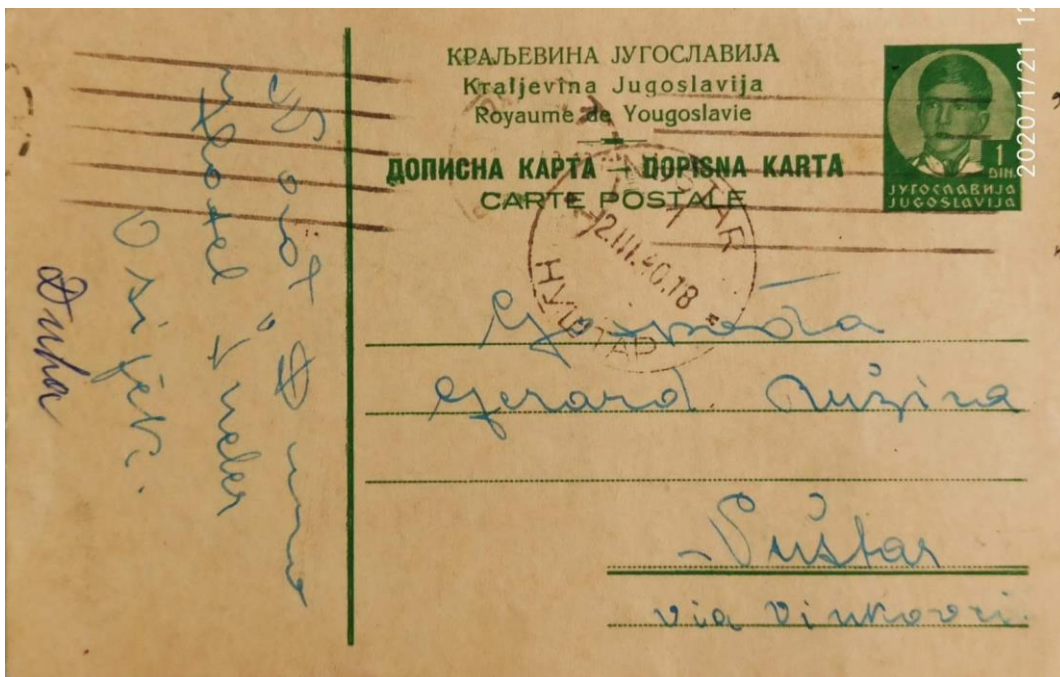 КРАЉЕВИНА ЈУГОСЛАВИЈА
Kraljevina Jugoslavija
Royaume de Yougoslavie
ДОПИСНА КАРТА — DOPISNA KARTA
CARTE POSTALE
1
DIN.
ЈУГОСЛАВИЈА
JUGOSLAVIJA
2020/1/21 12
NUŠTAR
12.III.40.18
НУШТАР
Gospođa
Gerard Ružica
Nuštar
via Vinkovci
Hotel
Osijek.